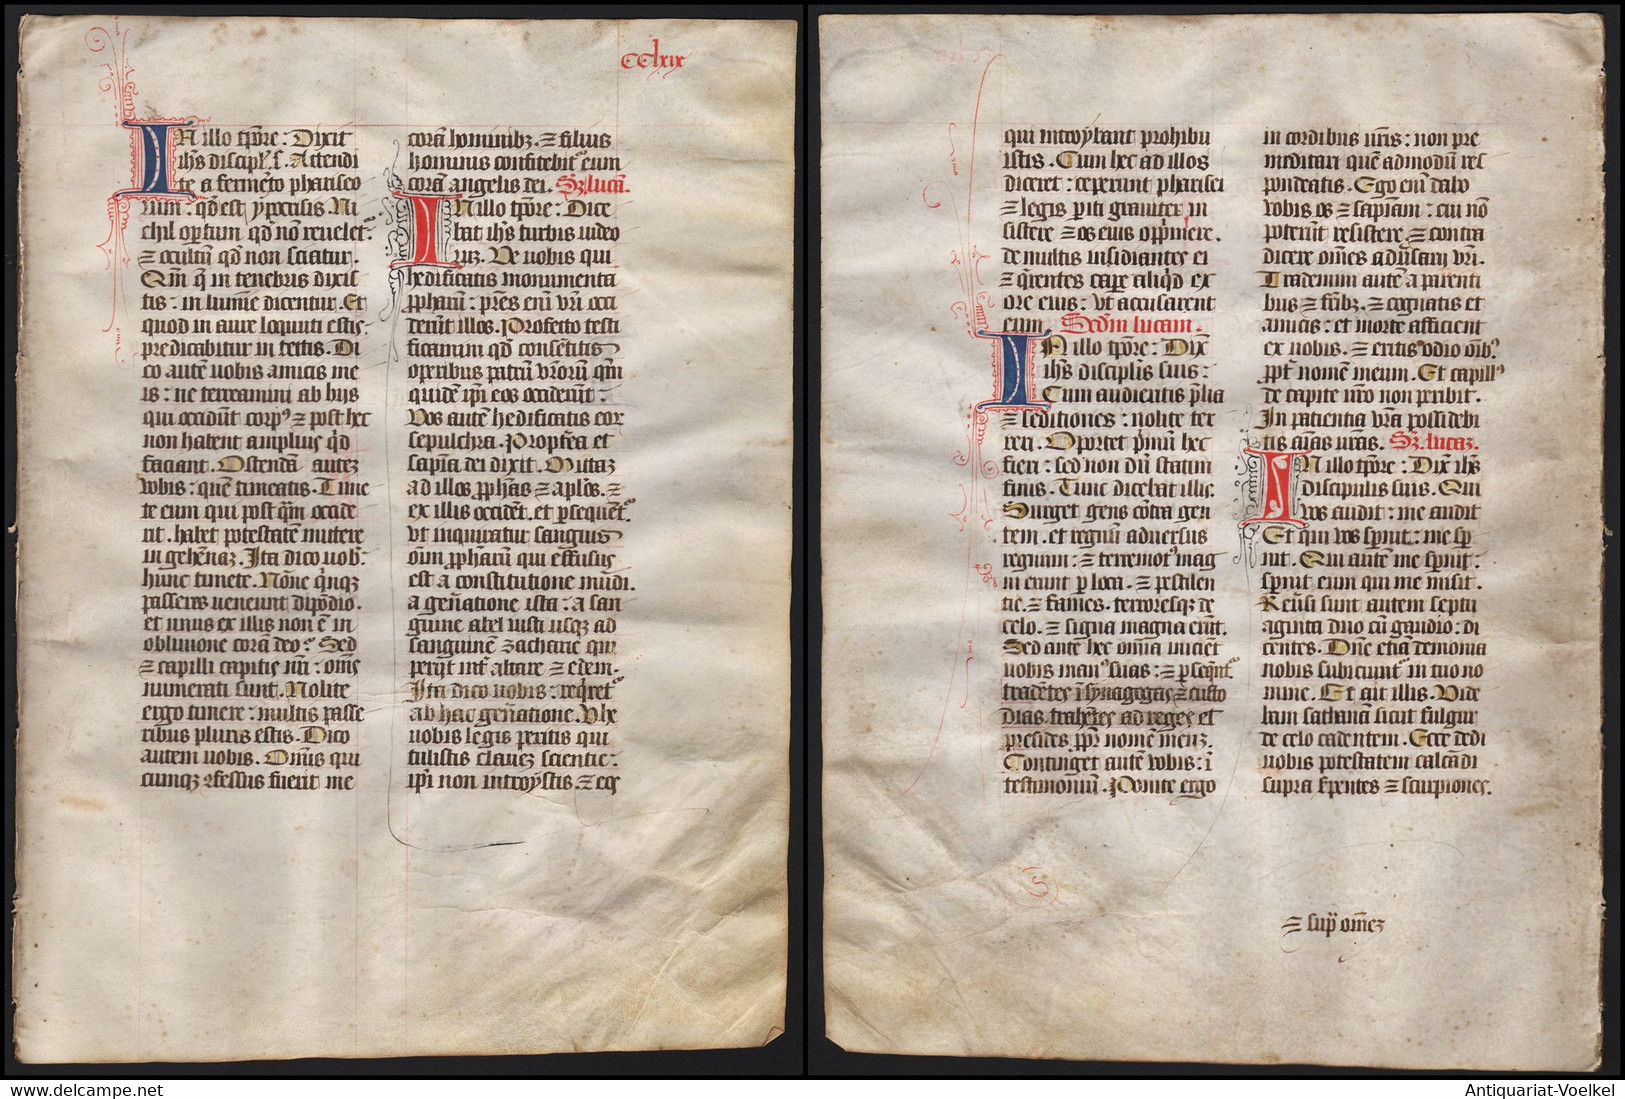 CClxix
IN illo tp̄re: Dixit
ih̄s discipl'. s. Attendi
te a fermēto pharíseo
rum: qd̄ est ypocrisis. Ni
chil optum qd̄ nō revelet᷑:
⁊ occultū qd̄ non sciatur.
Qm̄ q̄ in tenebris dixis
tis: in lumīe dicentur. Et
quod in aure loquuti estis:
predicabitur in tectis. Di
co autē vobis amicis me
is: ne terreamini ab hijs
qui occidūt corpꝰ ⁊ post hec
non habent amplius qd̄
faciant. Ostendā autez
vobis: quē timeatis. Time
te eum qui postqm̄ occide
rit. habet potestatē mittere
in gehēnaz. Ita dico vob̄.
hunc timete. Nōne qnqz
passeres veneunt dipōdio.
et unus ex illis non ē in
oblivione corā deo. Sed
⁊ capilli capitis vr̄i: om̄s
numerati sunt. Nolite
ergo timere: multis passe
ribus pluris estis. Dico
autem vobis. Omnis qui
cumqz ꝯfessus fuerit me
corā hominibz. ⁊ filius
hominis confitebit᷑ eum
corā angelis dei. Sz. lucā.
IN illo tp̄re: Dice
bat ih̄s turbis iudeo
ruz. Ve vobis qui
hedificatis monumenta
ꝓphar̄u: pr̄es enī vr̄i occi
derūt illos. Profecto testi
ficamini qd̄ consētitis
operibus patrū vr̄orū qm̄
quidē ip̄i eos occiderūt:
Vos autē hedificatis eor
sepulchra. Propt̄ea et
sapīa dei dixit. Mittaz
ad illos ꝓphās ⁊ ap̄los. ⁊
ex illis occidēt. et ꝑsequēt᷑.
ut inquiratur sanguis
oīm ꝓpharū qui effusus
est a constitutione mūdi.
a gēnatione ista: a san
guine abel iusti usqz ad
sanguinē zacharie qui
perijt int̄ altare ⁊ edem.
Ita dico vobis: reqret᷑
ab hac gēnatione. Vhe
vobis legis peritis qui
tulistis clavez scientie:
ip̄i non introystis. ⁊ eos
qui introybant prohibu
istis. Cum hec ad illos
diceret: ceperunt pharisei
⁊ legis ꝑiti graviter in
sistere ⁊ os eius opp̄mere.
de multis insidiantes ei
⁊ qrentes capere aliqd ex
ore eius: ut accusarent
eum. Scdm lucam.
IN illo tp̄re: Dix̄
ih̄s disciplis suis:
Cum audieritis p̄lia
⁊ seditiones: nolite ter
reri. Oportet p̄mū hec
fieri: sed non dū statim
finis. Tunc dicebat illis.
Surget gens cōtra gen
tem. et regnū adversus
regnum: ⁊ terremotꝰ mag
ni erunt ꝑ loca. ⁊ pestilen
tie. ⁊ fames. terroresqz de
celo. ⁊ signa magna erūt.
Sed ante hec omnia inicient
vobis manꝰ suas: ⁊ ꝑseqnt᷑
tradētes ī synagogas ⁊ custo
dias. trahētes ad reges et
presides ꝓpt̄ nomē meuz.
Continget autē vobis: ī
testimoniū. Ponite ergo
in cordibus vr̄is: non pre
meditari quē admodū res
pondeatis. Ego enī dabo
vobis os ⁊ sapīam: cui nō
poterūt resistere ⁊ contra
dicere om̄es adv̄sarij vr̄i.
Trademini autē a parenti
bus ⁊ fr̄ibz. ⁊ cognatis et
amicis: et morte afficient
ex vobis. ⁊ eritis odio oīb᷒
ꝓpt̄ nomē meum. Et capillꝰ
de capite vr̄o non peribit.
In patientia vr̄a possidebi
tis aīas vr̄as. Sz. lucaz.
IN illo tp̄re: Dix̄ ih̄s
discipulis suis. Qui
vos audit: me audit
Et qui vos sp̄nit: me sp̄
nit. Qui autē me sp̄nit:
sp̄nit eum qui me misit.
Rev̄si sunt autem septu
aginta duo cū gaudio: di
centes. Dn̄e etiā demonia
nobis subiciunt᷑ in tuo no
mine. Et ait illis. Vide
bam sathanā sicut fulgur
de celo cadentem. Ecce dedi
vobis potestatem calcādi
supra s̄pentes ⁊ scorpiones.
⁊ sup̄ om̄ez
Antiquariat-Voelkel